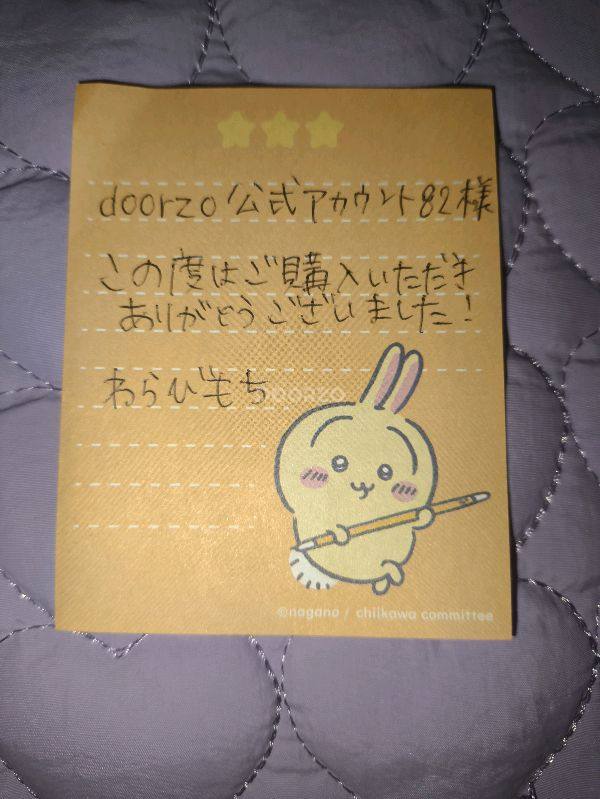 doorzo公式アカウント82様
この度はご購入いただき
ありがとうございました!
わらびもち
DOORZO
©nagano / chiikawa committee